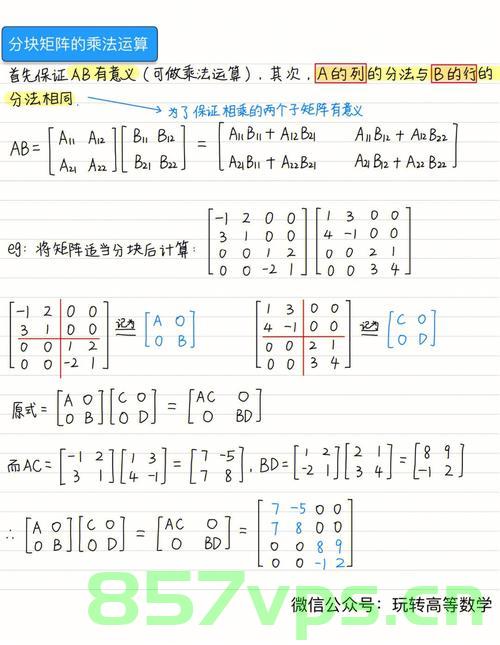 分块矩阵的乘法运算
首先保证AB有意义（可做乘法运算），其次，A的列的分法与B的行的
分法相同.
为了保证相乘的两个子矩阵有意义
AB = [A₁₁ A₁₂; A₂₁ A₂₂] [B₁₁ B₁₂; B₂₁ B₂₂] = [A₁₁B₁₁ + A₁₂B₂₁ A₁₁B₁₂ + A₁₂B₂₂; A₂₁B₁₁ + A₂₂B₂₁ A₂₁B₁₂ + A₂₂B₂₂]
eg: 将矩阵适当分块后计算: [-1 2 0 0; 3 1 0 0; 0 0 1 2; 0 0 -2 1] [1 3 0 0; 4 -1 0 0; 0 0 2 1; 0 0 3 4]
[-1 2 0 0; 3 1 0 0; 0 0 1 2; 0 0 -2 1] 记为 [A O; O B] [1 3 0 0; 4 -1 0 0; 0 0 2 1; 0 0 3 4] 记为 [C O; O D]
原式 = [A O; O B] [C O; O D] = [AC O; O BD]
而AC = [-1 2; 3 1] [1 3; 4 -1] = [7 -5; 7 8], BD = [1 2; -2 1] [2 1; 3 4] = [8 9; -1 2]
∴ [A O; O B] [C O; O D] = [AC O; O BD] = [7 -5 0 0; 7 8 0 0; 0 0 8 9; 0 0 -1 2]
857vps.cn
微信公众号：玩转高等数学